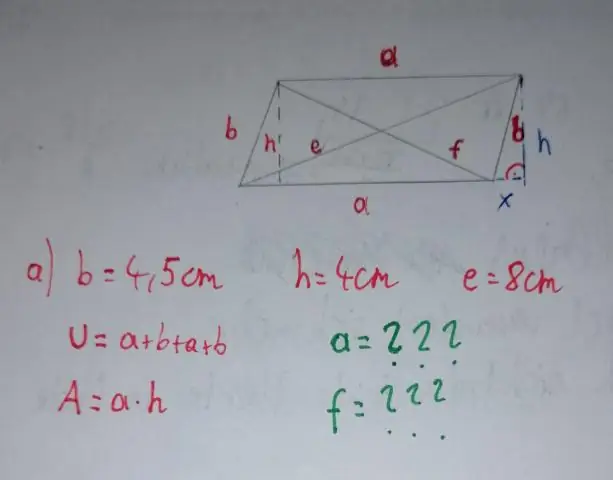 a
b h e f b h
a x
a) b = 4,5cm h = 4cm e = 8cm
U = a+b+a+b a = ???
A = a·h f = ???